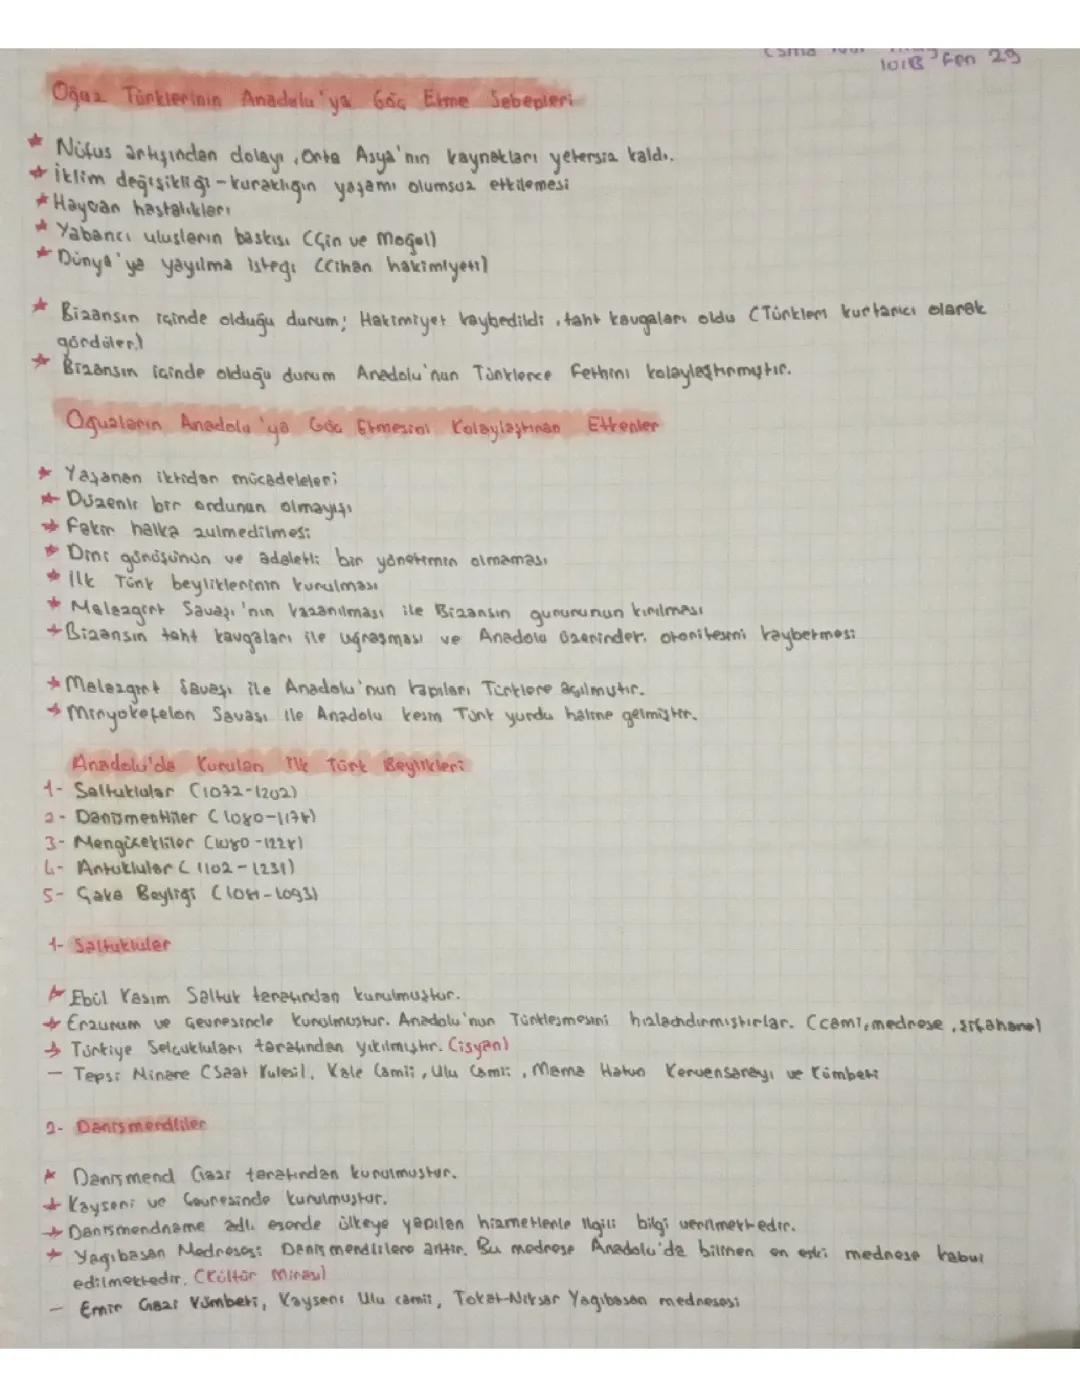 10/B Fen 29
Oğuz Türklerinin Anadolu'ya Göç Etme Sebepleri
★ Nüfus artışından dolayı, Orta Asya'nın kaynakları yetersiz kaldı.
★ İklim değişikliği - kuraklığın yaşamı olumsuz etkilemesi
★ Hayvan hastalıkları
★ Yabancı ulusların baskısı (Çin ve Moğol)
★ Dünya'ya yayılma isteği (Cihan hakimiyeti)
★ Bizansın içinde olduğu durum; Hakimiyet kaybedildi, taht kavgaları oldu (Türklerı kurtarıcı olarak
gördüler.)
★ Bizansın içinde olduğu durum Anadolu'nun Türklerce fethini kolaylaştırmıştır.
Oğuzların Anadolu'ya Göç Etmesini Kolaylaştıran Etkenler
★ Yaşanan iktidar mücadeleleri
★ Düzenli bir ordunun olmayışı
★ Fakir halka zulmedilmesi
★ Dini görüşünün ve adaletli bir yönetimin olmaması
★ İlk Türk beyliklerinin kurulması
★ Malazgirt Savaşı'nın kazanılması ile Bizansın gururunun kırılması
★ Bizansın taht kavgaları ile uğraşması ve Anadolu üzerinde otoritesini kaybetmesi
★ Malazgirt Savaşı ile Anadolu'nun kapıları Türklere açılmıştır.
★ Miryokefelon Savaşı ile Anadolu kesin Türk yurdu haline gelmiştir.
Anadolu'da Kurulan İlk Türk Beylikleri
1- Saltuklular (1072-1202)
2- Danişmentliler (1080-1178)
3- Mengücekliler (1080-1228)
4- Artuklular (1102-1231)
5- Çaka Beyliği (1081-1093)
1- Saltuklular
★ Ebül Kasım Saltuk tarafından kurulmuştur.
★ Erzurum ve Çevresinde kurulmuştur. Anadolu'nun Türkleşmesini hızlandırmıştırlar. (cami, medrese, şifahane)
★ Türkiye Selçukluları tarafından yıkılmıştır. (isyan)
- Tepsi Minare (Saat Kulesi), Kale Camii, Ulu Camii, Mama Hatun Kervansarayı ve Kümbeti
2- Danişmendliler
★ Danişmend Gazi tarafından kurulmuştur.
★ Kayseri ve Çevresinde kurulmuştur.
★ Danişmendname adlı eserde ülkeye yapılan hizmetlerle ilgili bilgi verilmektedir.
★ Yağıbasan Medresesi Danişmendlilere aittir. Bu medrese Anadolu'da bilinen en eski medrese kabul
edilmektedir. (Kültür Mirası)
- Emir Gazi Kümbeti, Kayseri Ulu camii, Tokat-Niksar Yağıbasan medresesi